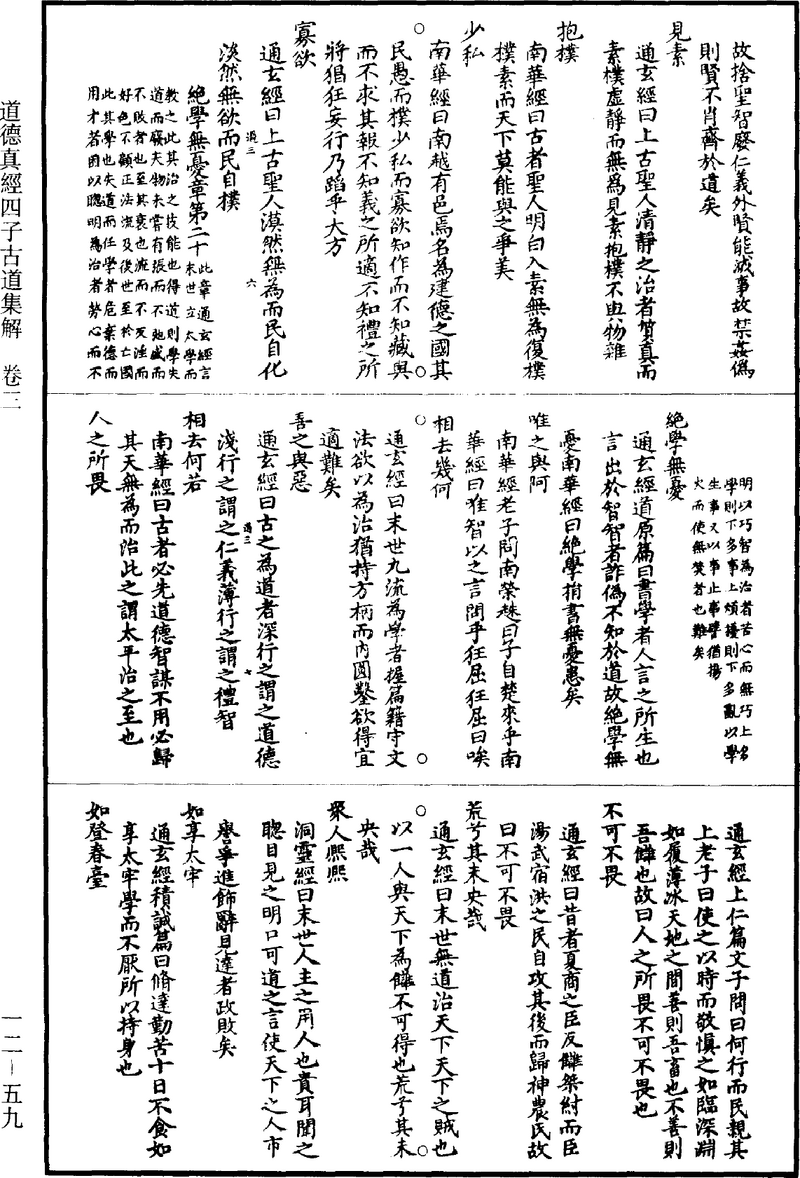 故捨聖智廢仁義外賢能滅事故禁姦僞
則賢不肖齊於道矣
見素
通玄經曰上古聖人清靜之治者質真而
素樸虛靜而無爲見素抱樸不與物雜
抱樸
南華經曰古者聖人明白入素無為復樸
樸素而天下莫能與之爭美
少私
南華經曰南越有邑焉名為建德之國其
民愚而樸少私而寡欲知作而不知藏與
而不求其報不知義之所適不知禮之所
將猖狂妄行乃蹈乎大方
寡欲
通玄經曰上古聖人漠然無為而民自化
淡然無欲而民自樸
道三
六
絕學無憂章第二十
此章通玄經言
末世立太學而
教之此其治之技能也得道則學失
道而廢夫物未嘗有張而不弛盛而
不敗者也至其衰也流而不反淫而
好色不顧正法流及後世至於亡國
此其學也失道而任學者危棄德而
用才者困以聰明為治者勞心而不
明以巧智為治者苦心而無巧上名
學則下多事上煩擾則下多亂以學
生事又以事止事譬猶揚
火而使無焚者也難矣
絕學無憂
通玄經道原篇曰書學者人言之所生也
言出於智智者詐僞不知於道故絕學無
憂南華經曰絕學捐書無憂患矣
唯之與阿
南華經老子問南榮趎曰子自楚來乎南
華經曰唯智以之言問乎狂屈狂屈曰唉
相去幾何
通玄經曰末世九流為學者握篇籍守文
法欲以為治猶持方柄而內圓鑿欲得宜
適難矣
善之與惡
通玄經曰古之為道者深行之謂之道德
淺行之謂之仁義薄行之謂之禮智
道三
七
相去何若
南華經曰古者必先道德智謀不用必歸
其天無為而治此之謂太平治之至也
人之所畏
通玄經上仁篇文子問曰何行而民親其
上老子曰使之以時而敬慎之如臨深淵
如履薄冰天地之間善則吾畜也不善則
吾讎也故曰人之所畏不可不畏也
不可不畏
通玄經曰昔者夏商之臣反讎桀紂而臣
湯武宿洪之民自攻其後而歸神農氏故
曰不可不畏
荒兮其未央哉
通玄經曰末世無道治天下天下之賊也
以一人與天下為讎不可得也荒兮其未
央哉
眾人熙熙
洞靈經曰末世人主之用人也貴耳聞之
聰目見之明口可道之言使天下之人市
譽爭進飾辭見達者政敗矣
如享太牢
通玄經積誠篇曰脩達勤苦十日不食如
享太牢學而不厭所以持身也
如登春臺
道德真經四子古道集解　卷三
一二－五九